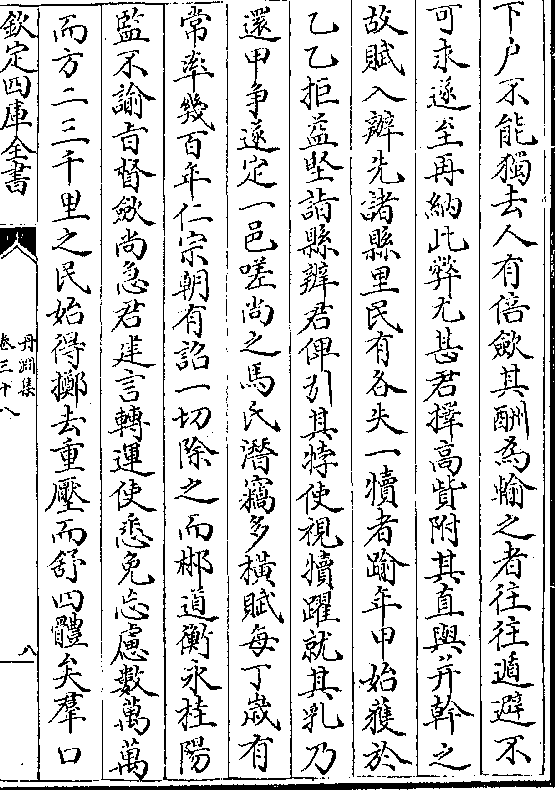 下户不能獨去人有倍歛其酬為輸之者往往遁避不
可求遂至再納此弊尤甚君擇高貲附其直與并幹之
故賦入辦先諸縣里民有各失一犢者踰年甲始獲於
乙乙拒益堅詣縣辨君俾引其牸使視犢躍就其乳乃
還甲争遂定一邑嗟尚之馬氏潛竊多橫賦每丁歲有
常率幾百年仁宗朝有詔一切除之而郴道衡永桂陽
監不諭旨督歛尚急君建言轉運使悉免忘慮數萬萬
而方二三千里之民始得擲去重壓而舒四體矣羣口
欽定四庫全書
丹淵集
卷三十八
八